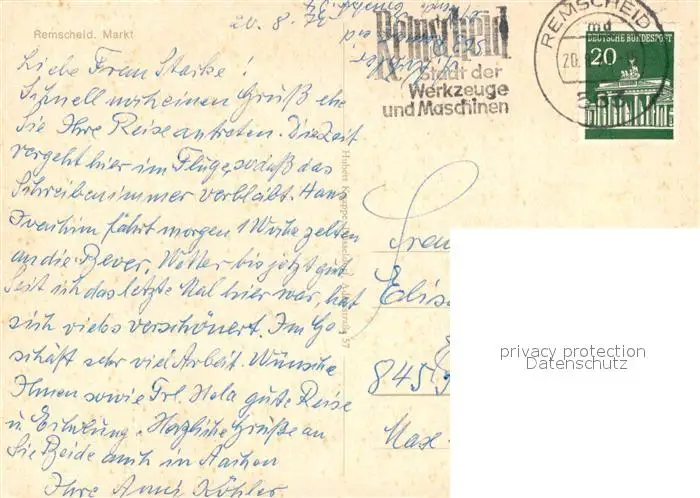 Remscheid. Markt
20. 8. 72
Liebe Frau Starke!
Schnell noch einen Gruß ehe
Sie Ihre Reise antreten. Die Zeit
vergeht hier im Fluge, sodaß das
Schreiben immer verbleibt. Hans
Joachim fährt morgen 1 Woche zelten
an die Bever. Wetter bis jetzt gut
Seit ich das letzte Mal hier war, hat
sich vieles verschönert. Im Ge
schäft sehr viel Arbeit. Wünsche
Ihnen sowie Frl. Hela gute Reise
u. Erholung. Herzliche Grüße an
Sie Beide auch in Aachen
Ihre Anni Köhler
Remscheid
Stadt der
Werkzeuge
und Maschinen
REMSCHEID
md
20.
563
DEUTSCHE BUNDESPOST
20
Frau
Elis
845
Max
privacy protection
Datenschutz